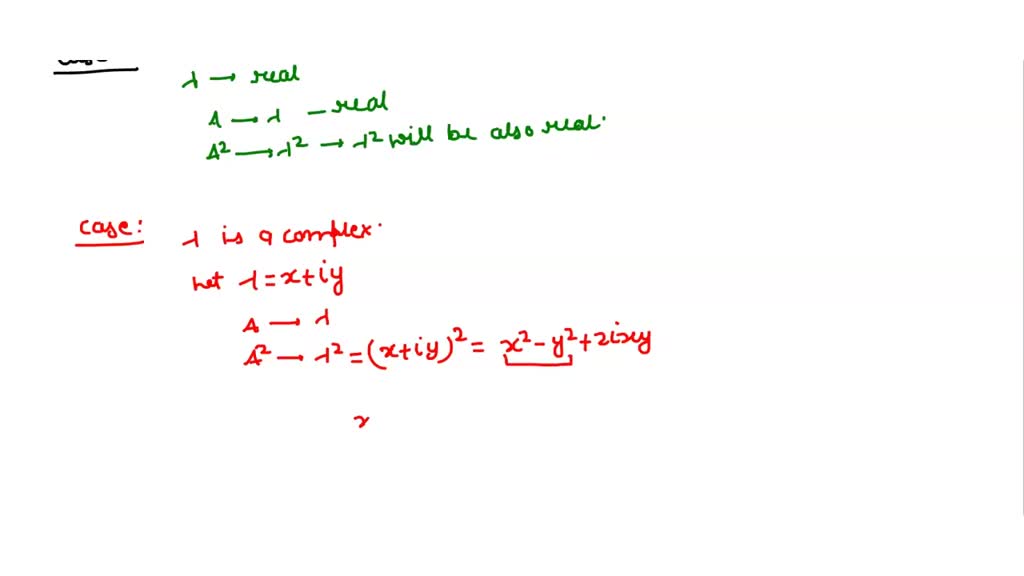 λ → real
A → λ – real
A² → λ² → λ² will be also real.
Case:
λ is a complex.
Let λ = x+iy
A → λ
A² → λ² = (x+iy)² = x² - y² + 2ixy
x